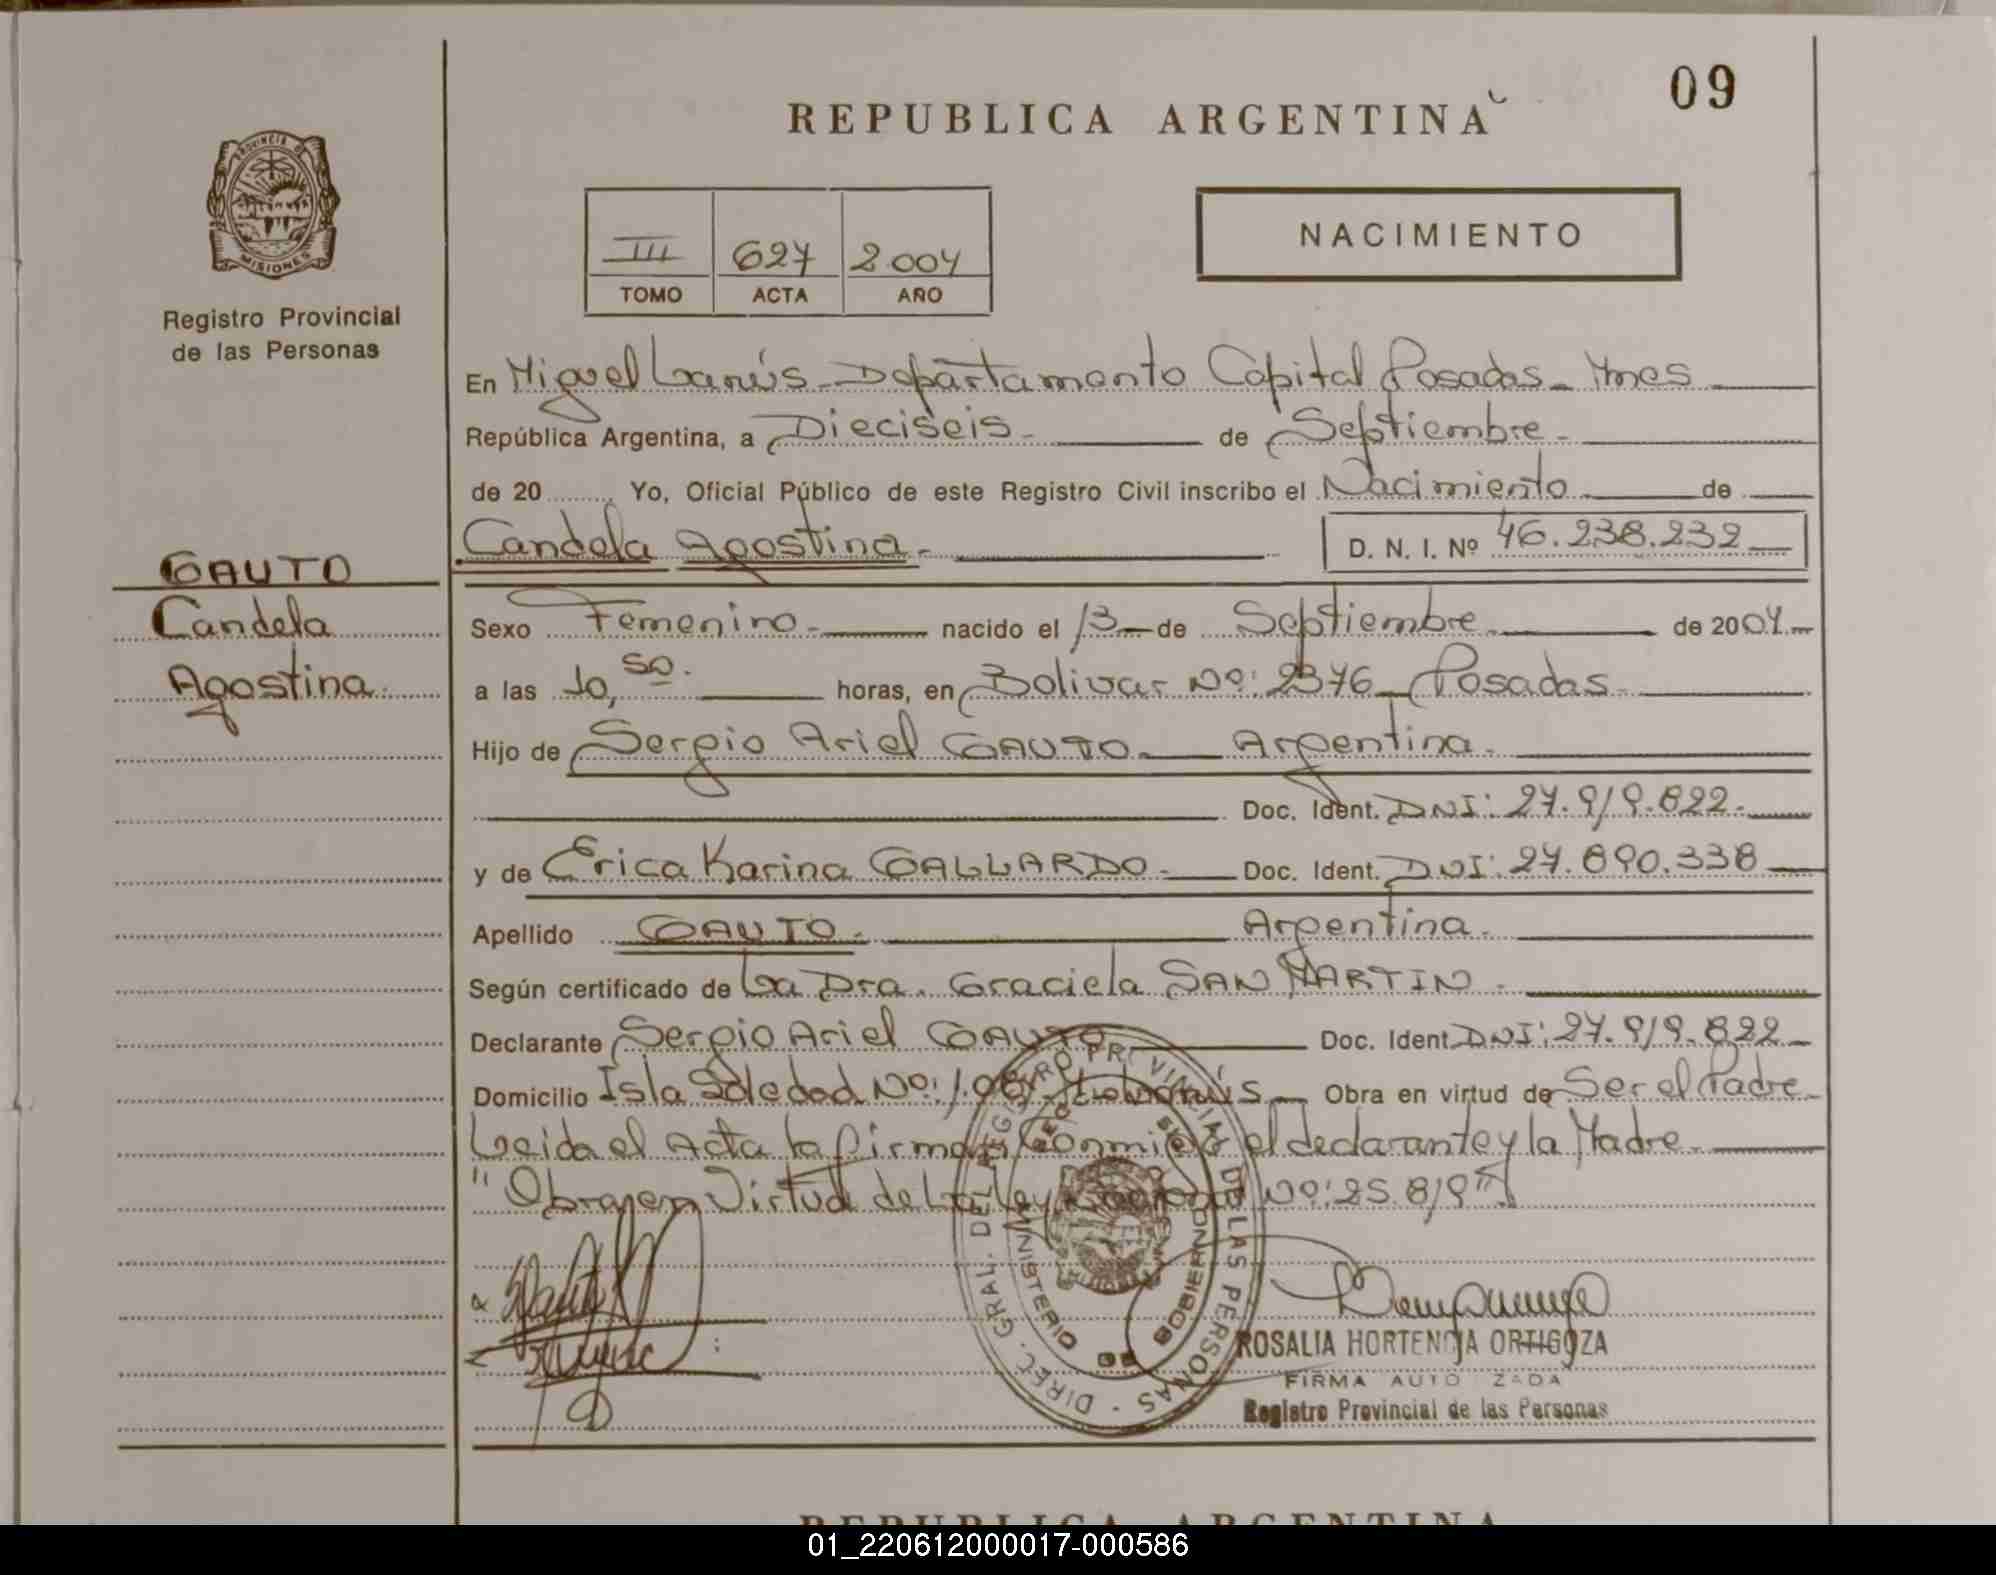 09
REPUBLICA ARGENTINA
PROVINCIA DE
MISIONES
Registro Provincial
de las Personas
III 627 2.004
TOMO ACTA AÑO
NACIMIENTO
En Miguel Lanús - Departamento Capital Posadas - Mnes
República Argentina, a Dieciseis - de Septiembre -
de 20 ........ Yo, Oficial Público de este Registro Civil inscribo el Nacimiento de
Candela Agostina -
D. N. I. Nº 46.238.232
GAUTO
Candela
Agostina.
Sexo Femenino - nacido el 13 de Septiembre de 2004
a las 10,50. horas, en Bolivar Nº: 2376 Posadas -
Hijo de Sergio Ariel GAUTO - Argentina -
Doc. Ident. DNI: 27.919.822 -
y de Erica Karina GALLARDO - Doc. Ident. DNI: 27.890.338
Apellido GAUTO - Argentina -
Según certificado de La Dra. Graciela SAN MARTIN -
Declarante Sergio Ariel GAUTO Doc. Ident. DNI: 27.919.822 -
Domicilio Isla Soledad Nº: Lanús Obra en virtud de Ser el Padre -
Leida el Acta la firman Conmigo el declarante y la Madre -
"Obra en Virtud de La Ley Nº: 25.819"
DIREC. GRAL. DEL REGISTRO PROVINCIAL DE LAS PERSONAS
MINISTERIO DE GOBIERNO
ROSALIA HORTENCIA ORTIGOZA
FIRMA AUTORIZADA
Registro Provincial de las Personas
REPUBLICA ARGENTINA
01_220612000017-000586